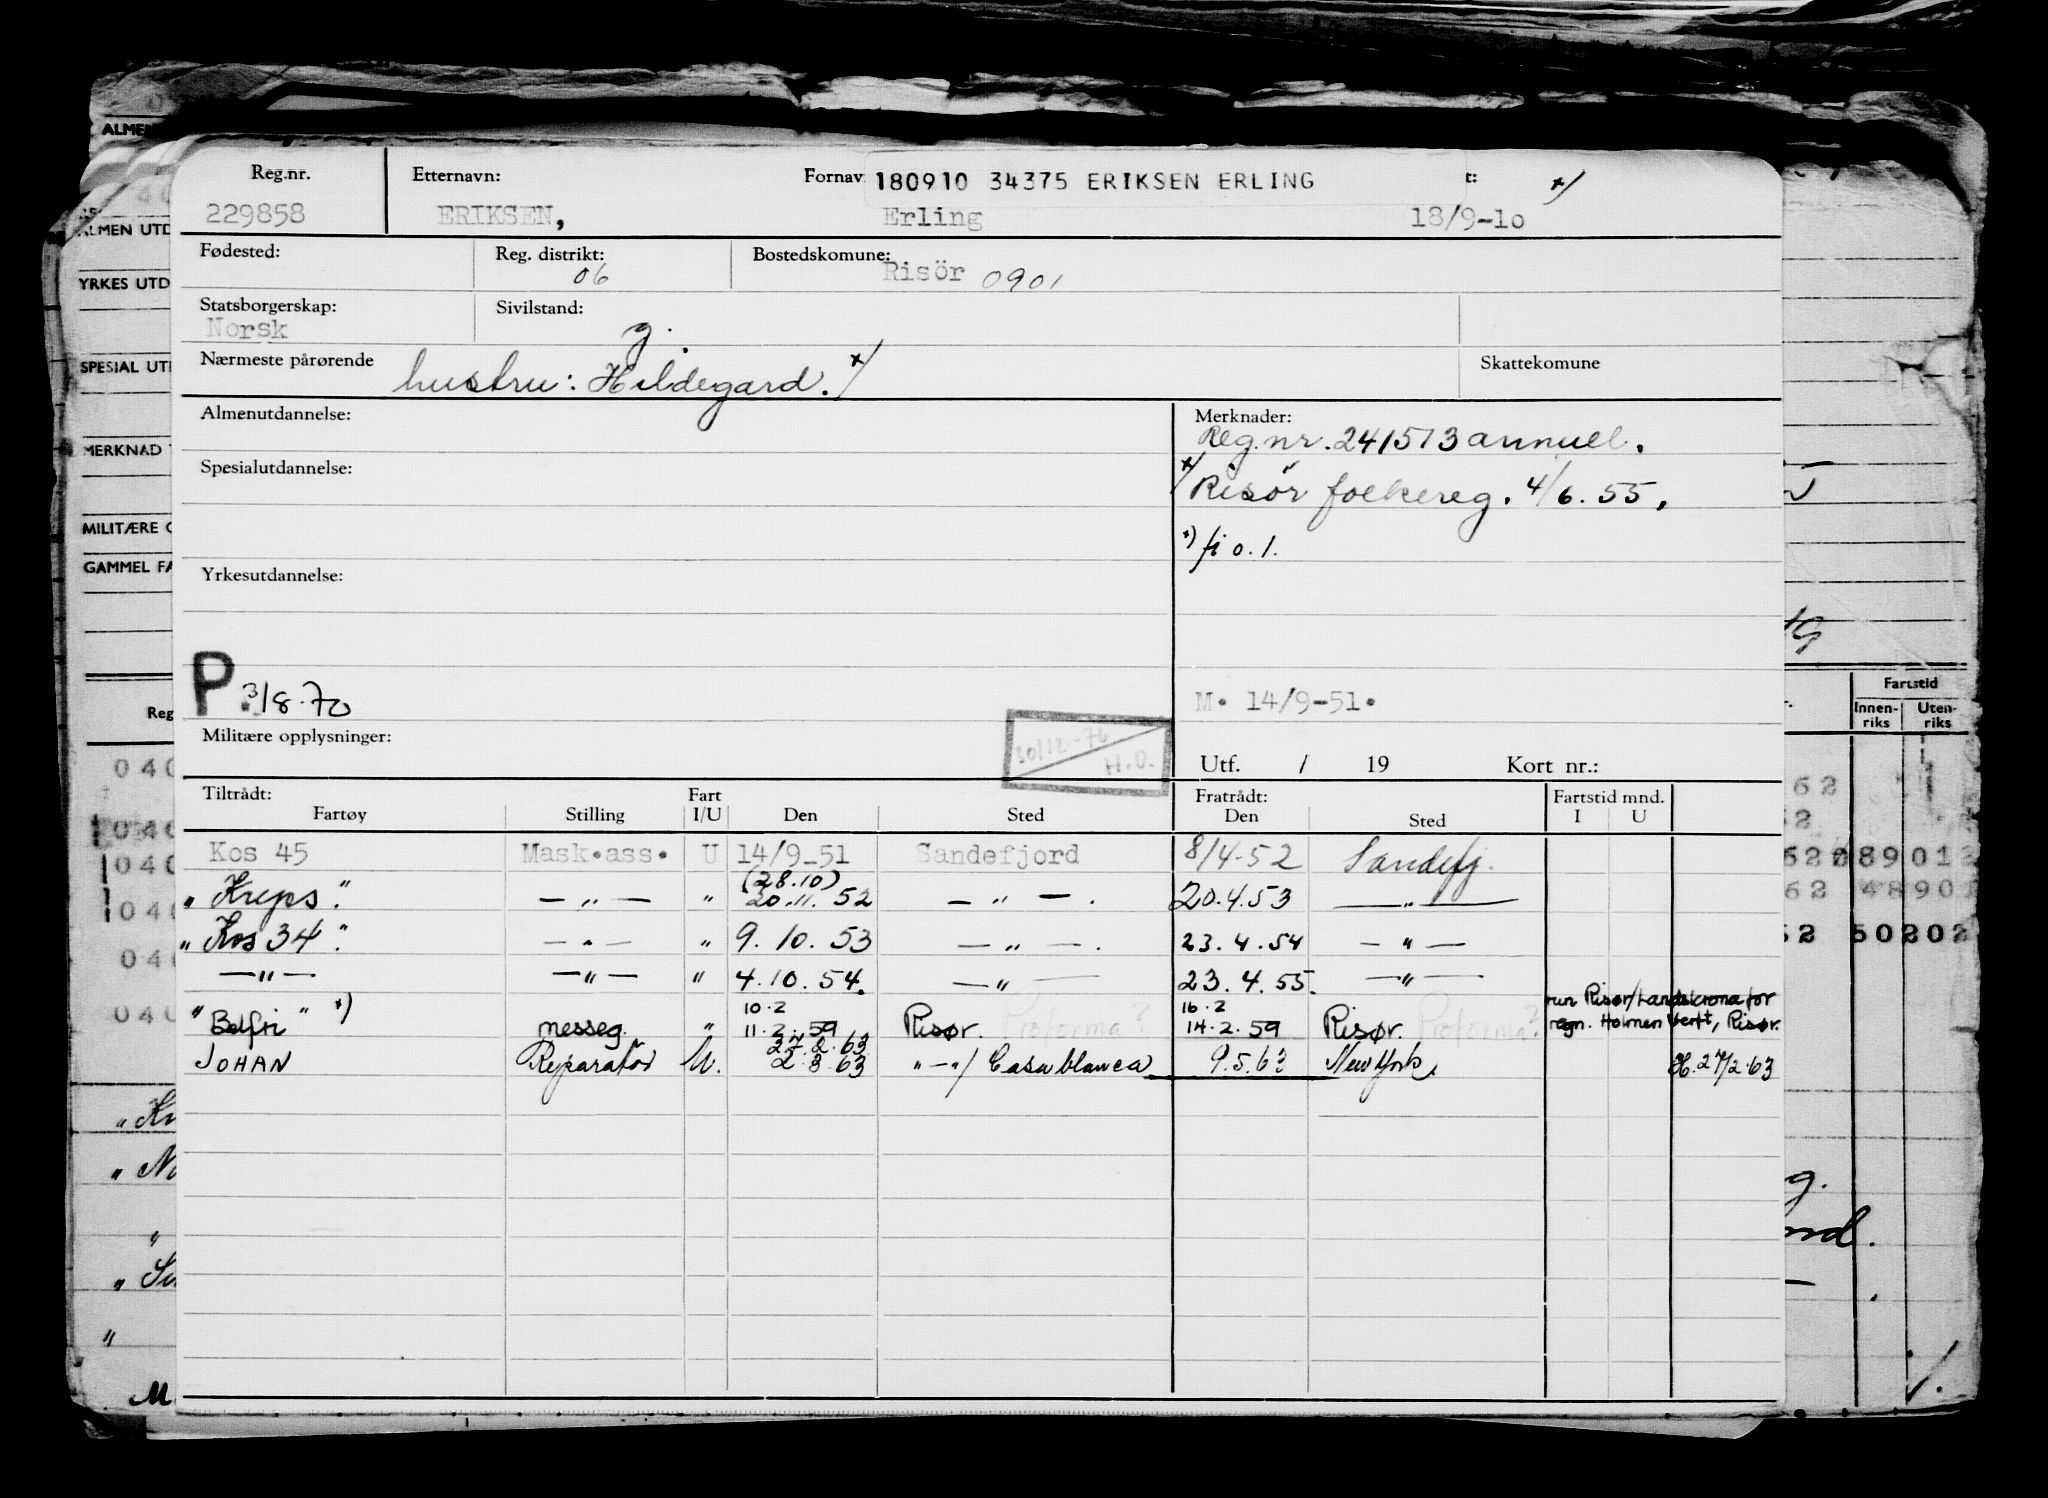 Reg.nr. Etternavn: Fornav 180910 34375 ERIKSEN ERLING t: x/
229858 ERIKSEN, Erling 18/9-1o
Fødested: Reg. distrikt: 06 Bostedskomune: Risör 0901
Statsborgerskap: Norsk Sivilstand: g.
Nærmeste pårørende hustru: Hildegard. x/ Skattekomune
Almenutdannelse: Merknader:
Reg.nr. 241513 annull.
Spesialutdannelse: x/ Risör folkereg. 4/6. 55.
x) fi o. 1.
Yrkesutdannelse:
P 3/8-70 M. 14/9-51.
Militære opplysninger: 30/12-76 H.O.
Utf. / 19 Kort nr.:
Tiltrådt: Fratrådt: Fartstid mnd.
Fartøy Stilling Fart I/U Den Sted Den Sted I U
Kos 45 Mask.ass. U 14/9-51 Sandefjord 8/4-52 Sandefj.
(28.10)
" Kreps " — " — " 20.11. 52 — " — . 20.4.53 — " —
" Kos 34 " — " — " 9. 10. 53 — " — . 23. 4. 54 — " —
— " — — " — " 4.10. 54. — " — 23. 4. 55. — " —
10.2 16.2 run Risør/Landskrona for
" Belfri " x) messeg. " 11.2.59 Risør. Proforma? 14.2.59 Risør. Proforma? regn. Holmen Verft, Risør.
27.2.63
JOHAN Reparatör U. 2.3.63 " — " / Casablanca 9.5.63 New York H. 27/2.63
ALMEN UTD
YRKES UTD
SPESIAL UTD
MERKNAD
MILITÆRE
GAMMEL FA
Reg
Fartstid
Innen-riks Uten-riks
040
040
040
040
040
040
62
62 89012
62 48901
52 50202